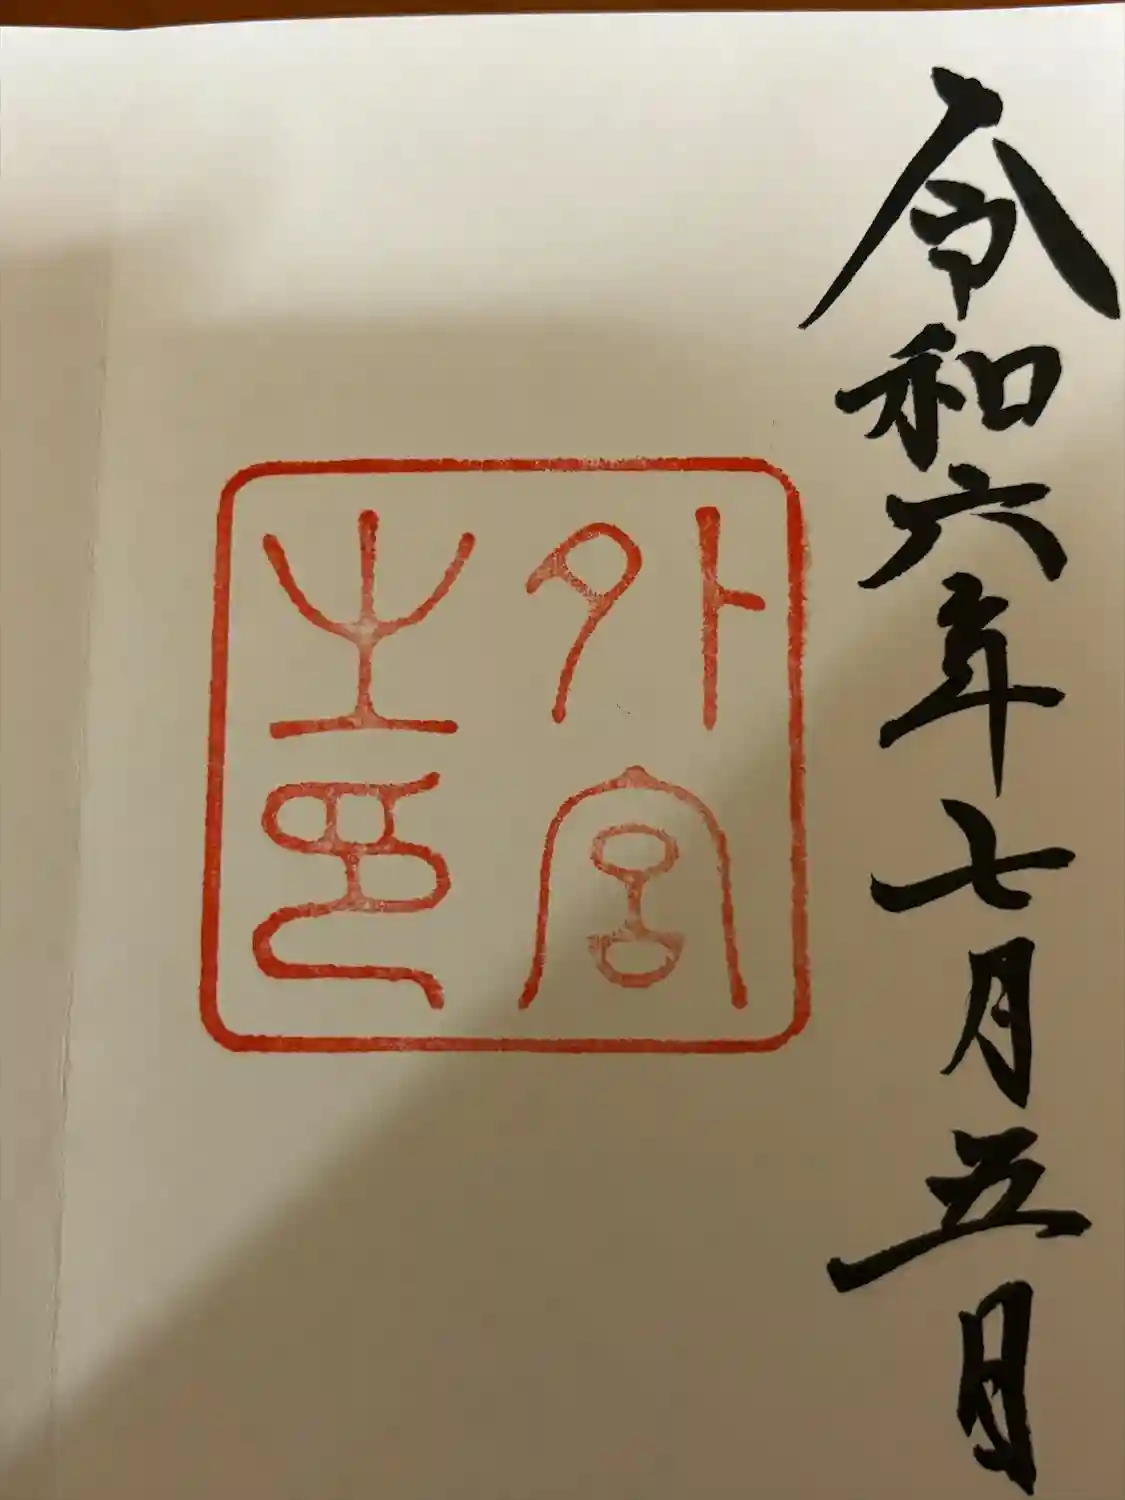 令和六年七月五日
外宮
之印